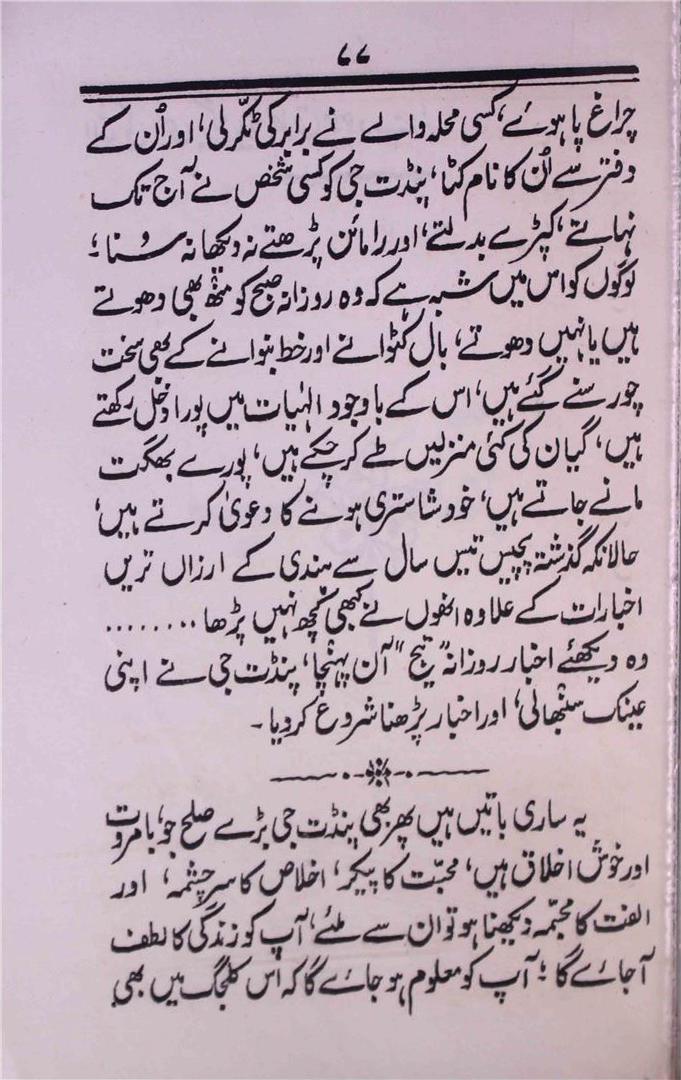 ۷۷
چراغ پا ہوئے، کسی محلہ والے نے برابر کی ٹکر لی، اور اُن کے
دفتر سے اُن کا نام کٹا، پنڈت جی کو کسی شخص نے آج تک
نہاتے، کپڑے بدلتے، اور رامائن پڑھتے نہ دیکھا نہ سُنا؛
لوگوں کو اس میں شبہ ہے کہ وہ روزانہ صبح کو منھ بھی دھوتے
ہیں یا نہیں دھوتے، بال کٹوانے اور خط بنوانے کے بھی سخت
چور سنے گئے ہیں، اس کے باوجود الٰہیات میں پورا دخل رکھتے
ہیں، گیان کی کئی منزلیں طے کر چکے ہیں، پورے بھگت
مانے جاتے ہیں، خود شاستری ہونے کا دعویٰ کرتے ہیں،
حالانکہ گذشتہ پچیس تیس سال سے ہندی کے ارزاں تریں
اخبارات کے علاوہ انھوں نے کبھی کچھ نہیں پڑھا ........
وہ دیکھئے اخبار روزانہ "تیج" آن پہنچا، پنڈت جی نے اپنی
عینک سنبھالی، اور اخبار پڑھنا شروع کر دیا۔
یہ ساری باتیں ہیں پھر بھی پنڈت جی بڑے صلح جو، بامروت
اور خوش اخلاق ہیں، محبّت کا پیکر، اخلاص کا سرچشمہ، اور
الفت کا مجسّمہ دیکھنا ہو تو ان سے ملئے، آپ کو زندگی کا لطف
آ جائے گا؛ آپ کو معلوم ہو جائے گا کہ اس کلجگ میں بھی